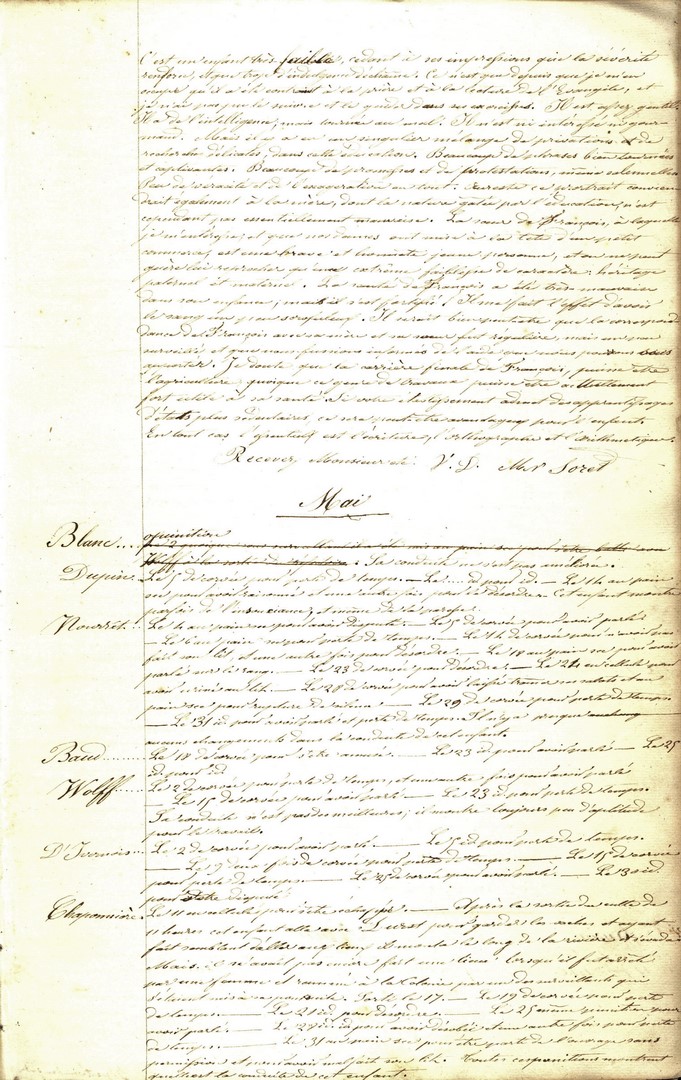 C'est un enfant très faible, cédant à ses impressions que la sévérité
renferme, et que trop d'indulgence déchaîne. Ce n'est que depuis que je m'en
occupe qu'il a été contraint à la prière et à la lecture de l'Evangile, et
je n'ai pas pu le suivre et le guider dans ses exercises. Il est assez gentil.
Il a de l'intelligence, mais tournée au mal. Il n'est ni intéressé ni gour-
mand. Mais il y a eu un singulier mélange de privations et de
recherches délicates, dans cette éducation. Beaucoup de phrases bien tournées
et captivantes. Beaucoup de promesses et de protestations, même solennelles
Peu de véracité et de l'exagération en tout : Au reste ce portrait convien-
drait également à la mère, dont la nature gâtée par l'éducation, n'est
cependant pas essentiellement mauvaise. La sœur de François, à laquelle
je m'intéresse, et que nos dames ont mise à la tête d'un petit
commerce, est une brave et honnête jeune personne, et on ne peut
guère lui reprocher qu'une extrême faiblesse de caractère ; héritage
paternel et maternel. La santé de François a été très mauvaise
dans son enfance ; mais il s'est fortifié. Il me fait l'effet d'avoir
le sang un peu scrofuleux. Il serait bien peut-être que la correspon-
dance de François avec sa mère et sa sœur fut régulière, mais un peu
surveillée, et que nous fussions informés de l'aide que nous pouvons vous
apporter. Je doute que la carrière finale de François, puisse être
l'agriculture ; quoique ce genre de travaux puisse être actuellement
fort utile à sa santé. Si votre établissement admet des apprentissages
d'états plus sédentaires, ce sera peut-être avantageux pour l'enfant.
En tout cas l'essentiel est l'écriture, l'orthographe et l'arithmétique.
Recevez, Monsieur &c. Mr Soret
Mai
Blanc punition
Wolff à la sortie. Sa conduite ne s'est pas améliorée.
Dupin Le 5 de corvée pour perte de temps. — Le .... id pour id — Le 14 au pain
sec pour avoir raisonné et une autre fois pour désordre. Cet enfant montre
parfois de l'insouciance, et même de la paresse.
Nourrit Le 4 au pain sec pour avoir disputé. — Le 5 de corvée pour avoir parlé
— Le 6 au pain sec pour perte de temps. — Le 14 de corvée pour n'avoir pas
fait son lit, et une autre fois pour désordre. — Le 18 au pain sec pour avoir
parlé sur le rang. — Le 23 de corvée pour désordre. — Le 24 en cellule pour
avoir crié au lit. — Le 28 de corvée pour avoir laissé traîner ses sabots et au
pain sec pour rupture de — Le 29 de corvée pour perte de temps
— Le 31 id pour avoir parlé et perte de temps. Il n'y a presque
aucun changement dans la conduite de cet enfant.
Baud Le 18 de corvée pour s'être amusé. — Le 23 id pour avoir parlé — Le 25
id pour id.
Wolff Le 2 de corvée pour perte de temps, et une autre fois pour avoir parlé
— Le 15 de corvée pour avoir parlé — Le 23 id pour perte de temps.
Sa conduite n'est pas des meilleures ; il montre toujours peu d'aptitude
pour le travail.
D'Ivernois Le 2 de corvée pour avoir parlé. — Le 5 id pour perte de temps.
— Le 9 une fois de corvée pour perte de temps. — Le 15 de corvée
pour perte de temps. — Le 25 de corvée pour avoir parlé. — Le 13 id
pour s'être disputé
Chaponnière Le 11 en cellule pour s'être échappé. — Après la sortie du culte de
11 heures cet enfant alla avec Duret pour garder les vaches et ayant
fait semblant d'aller aux il monta le long de la rivière et s'évada
Mais, il n'avait pas même fait une lieue lorsqu'il fut arrêté
par une femme et ramené à la Colonie par un des surveillants qui
s'étaient mis à sa poursuite. Sorti le 17. — Le 19 de corvée pour perte
de temps. — Le 21 id pour désordre. — Le 25 même punition pour
avoir parlé. — Le id pour avoir désobéi et une autre fois pour perte
de temps. — Le 31 au pain sec pour être parti de l'ouvrage sans
permission et pour avoir mal fait son lit. Toutes ces punitions montrent
quelle est la conduite de cet enfant.